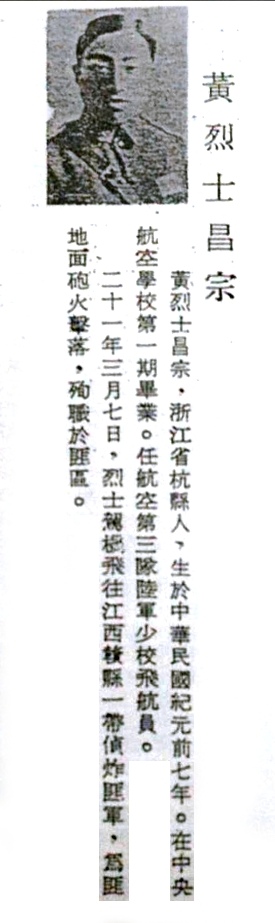 黃烈士昌宗
黃烈士昌宗，浙江省杭縣人，生於中華民國紀元前七年。在中央
航空學校第一期畢業。任航空第三隊陸軍少校飛航員。
二十一年三月七日，烈士駕機飛往江西贛縣一帶偵炸匪軍，爲匪
地面砲火擊落，殉職於匪區。